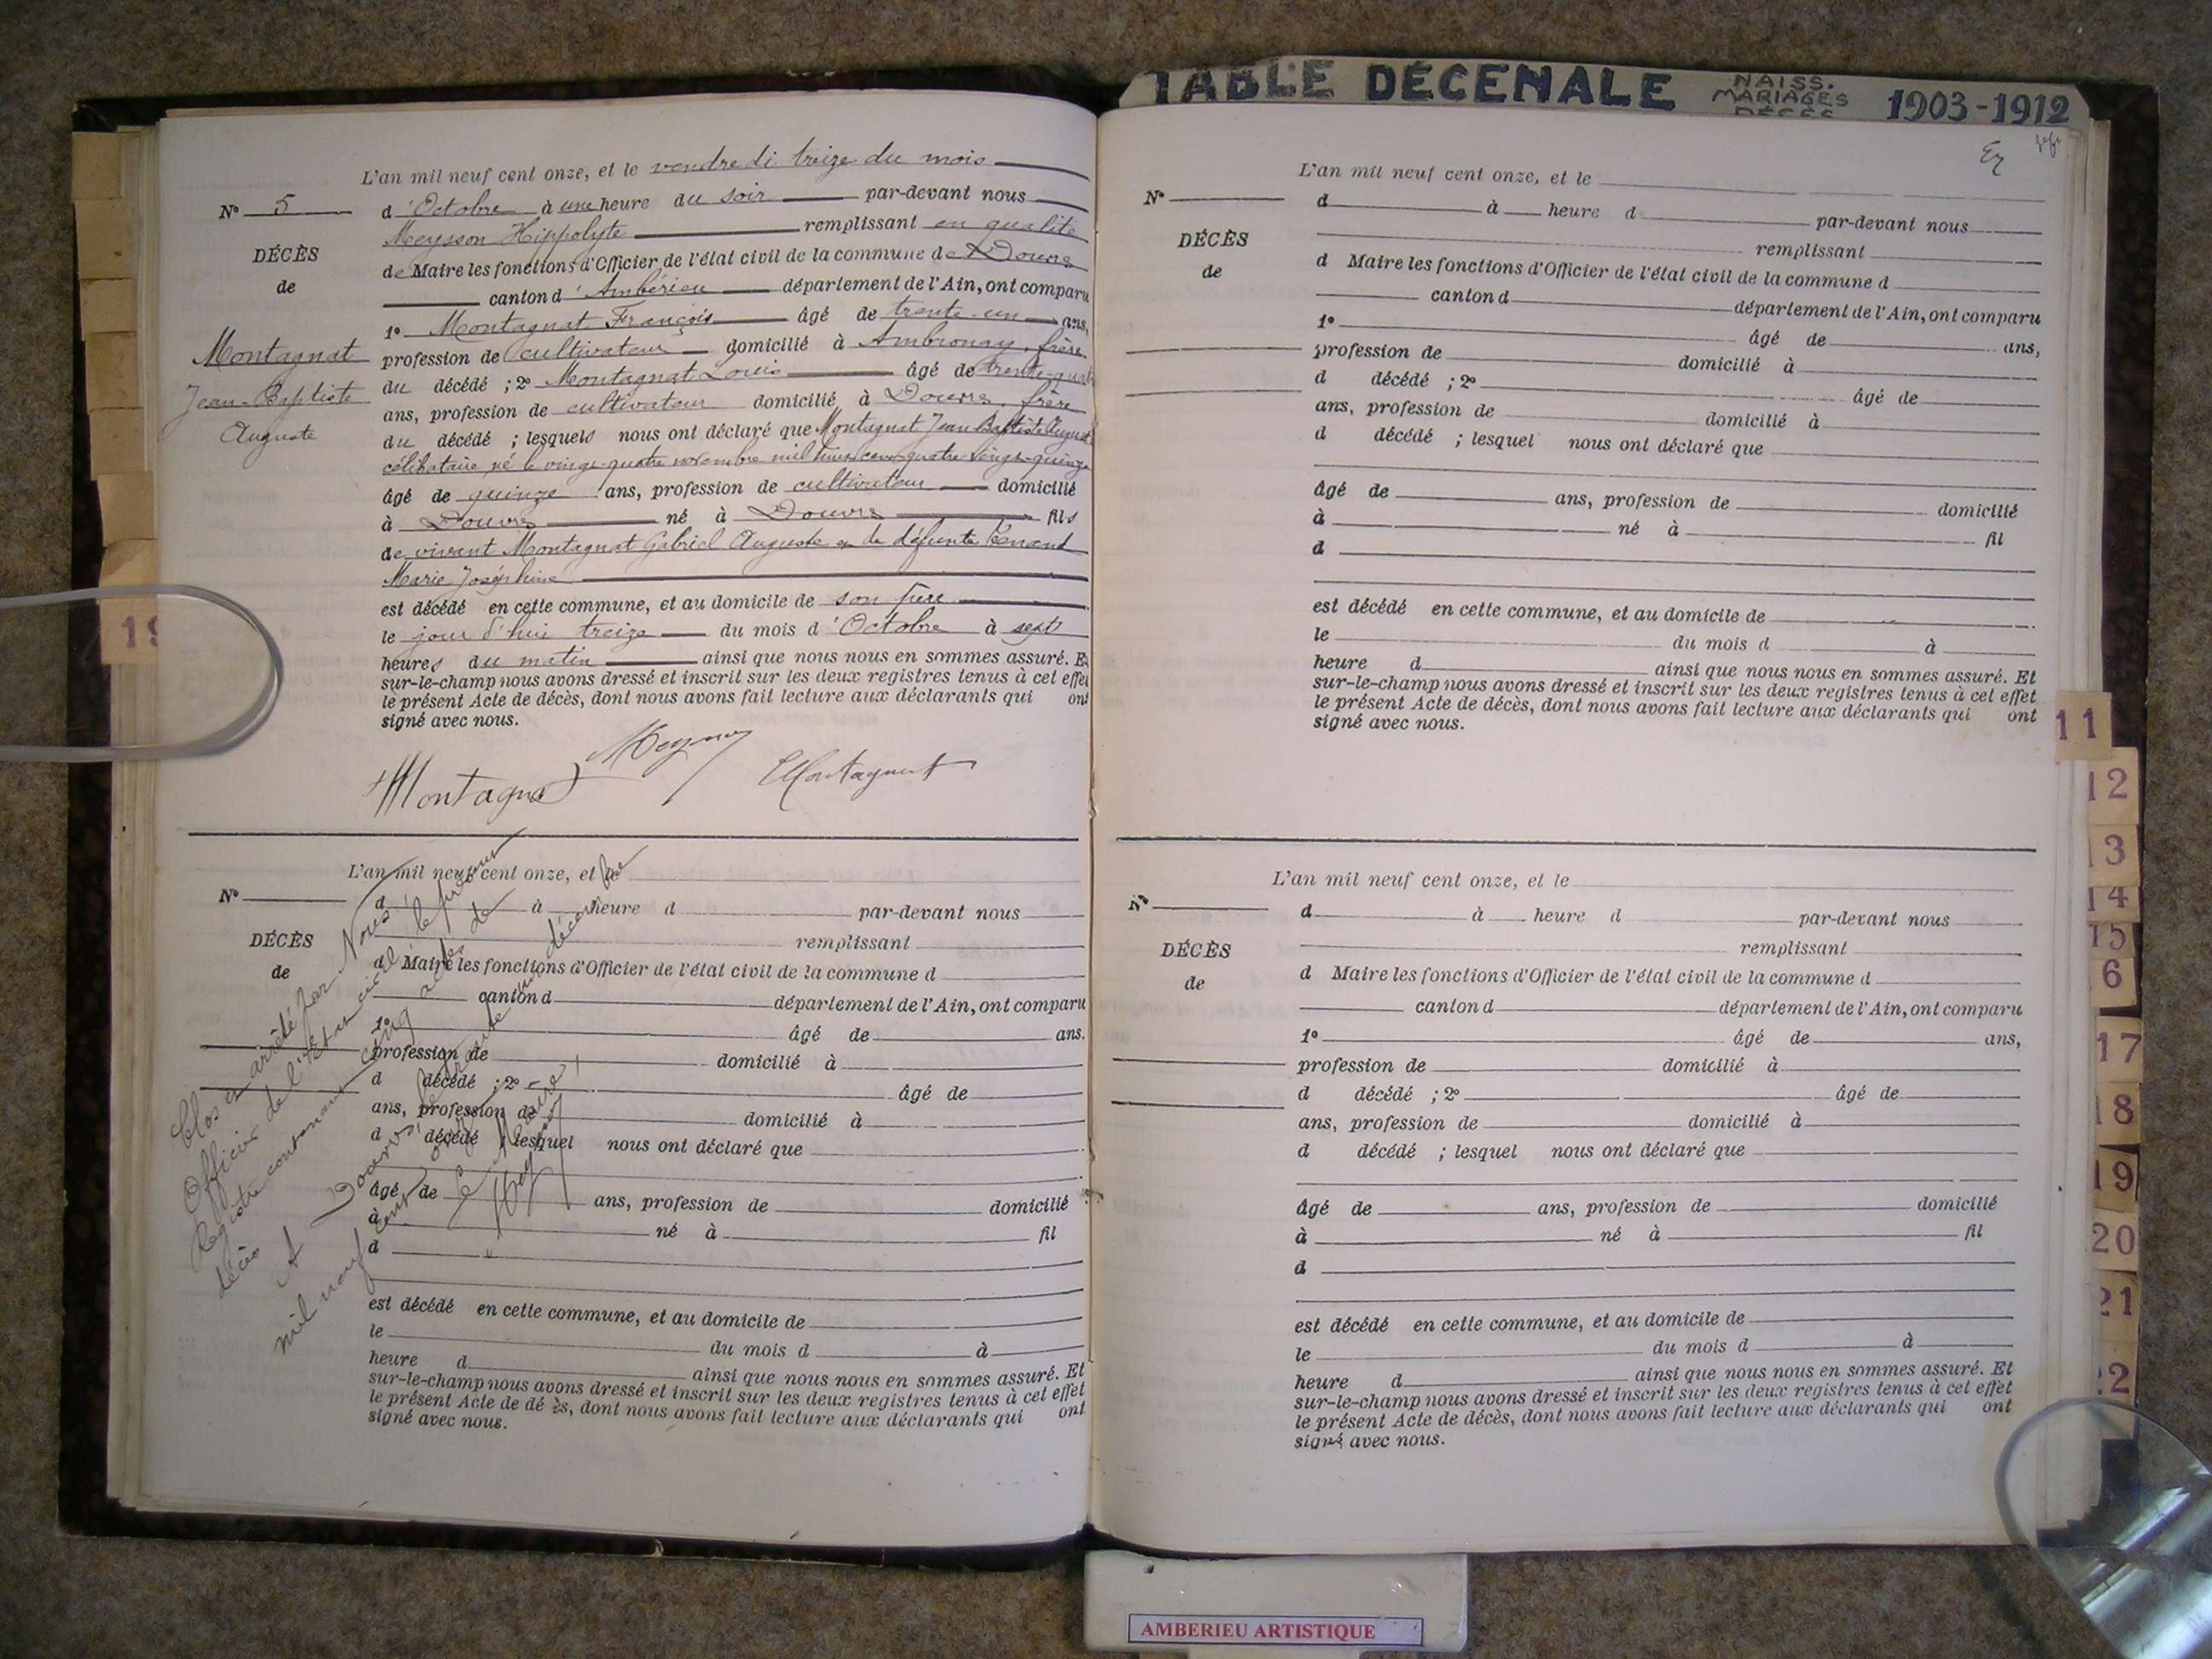 TABLE DÉCENALE NAISS. MARIAGES DÉCÈS 1903-1912
L'an mil neuf cent onze, et le vendredi treize du mois
N° 5
d'Octobre à une heure du soir par-devant nous
Meysson Hippolyte remplissant en qualité
DÉCÈS
de Maire les fonctions d'Officier de l'état civil de la commune de Douvres
de
canton d'Ambérieu département de l'Ain, ont comparu
1° Montagnat François âgé de trente-un ans,
Montagnat
profession de cultivateur domicilié à Ambronay, frère
du décédé ; 2° Montagnat Louis âgé de
Jean-Baptiste
ans, profession de cultivateur domicilié à Douvres, frère
Auguste
du décédé ; lesquels nous ont déclaré que Montagnat Jean Baptiste Auguste
célibataire né le vingt-quatre novembre mil huit cent quatre vingt-quinze
âgé de quinze ans, profession de cultivateur domicilié
à Douvres né à Douvres fils
de vivant Montagnat Gabriel Auguste et de défunte
Marie Joséphine
est décédé en cette commune, et au domicile de son père
le jour d'hui treize du mois d'Octobre à sept
heures du matin ainsi que nous nous en sommes assuré. Et
sur-le-champ nous avons dressé et inscrit sur les deux registres tenus à cet effet
le présent Acte de décès, dont nous avons fait lecture aux déclarants qui ont
signé avec nous.
Montagnat
Montagnat
L'an mil neuf cent onze, et le
N°
d à heure d par-devant nous
remplissant
DÉCÈS
de
d Maire les fonctions d'Officier de l'état civil de la commune d
canton d département de l'Ain, ont comparu
1° âgé de ans.
profession de domicilié à
d décédé ; 2° âgé de
ans, profession de domicilié à
d décédé ; lesquel nous ont déclaré que
âgé de ans, profession de domicilié
à né à fil
d
est décédé en cette commune, et au domicile de
le du mois d à
heure d ainsi que nous nous en sommes assuré. Et
sur-le-champ nous avons dressé et inscrit sur les deux registres tenus à cet effet
le présent Acte de dé ès, dont nous avons fait lecture aux déclarants qui ont
signé avec nous.
Clos et arrêté par Nous,
Officier de l'Etat civil le présent
Registre contenant cinq actes de
décès
A Douvres, le trente un décembre
mil neuf cent onze
Le Maire,
L'an mil neuf cent onze, et le
N°
d à heure d par-devant nous
remplissant
DÉCÈS
de
d Maire les fonctions d'Officier de l'état civil de la commune d
canton d département de l'Ain, ont comparu
1° âgé de ans,
profession de domicilié à
d décédé ; 2° âgé de
ans, profession de domicilié à
d décédé ; lesquel nous ont déclaré que
âgé de ans, profession de domicilié
à né à fil
d
est décédé en cette commune, et au domicile de
le du mois d à
heure d ainsi que nous nous en sommes assuré. Et
sur-le-champ nous avons dressé et inscrit sur les deux registres tenus à cet effet
le présent Acte de décès, dont nous avons fait lecture aux déclarants qui ont
signé avec nous.
L'an mil neuf cent onze, et le
N°
d à heure d par-devant nous
remplissant
DÉCÈS
de
d Maire les fonctions d'Officier de l'état civil de la commune d
canton d département de l'Ain, ont comparu
1° âgé de ans,
profession de domicilié à
d décédé ; 2° âgé de
ans, profession de domicilié à
d décédé ; lesquel nous ont déclaré que
âgé de ans, profession de domicilié
à né à fil
d
est décédé en cette commune, et au domicile de
le du mois d à
heure d ainsi que nous nous en sommes assuré. Et
sur-le-champ nous avons dressé et inscrit sur les deux registres tenus à cet effet
le présent Acte de décès, dont nous avons fait lecture aux déclarants qui ont
signé avec nous.
19
11
12
13
14
15
6
17
18
19
20
21
22
AMBERIEU ARTISTIQUE